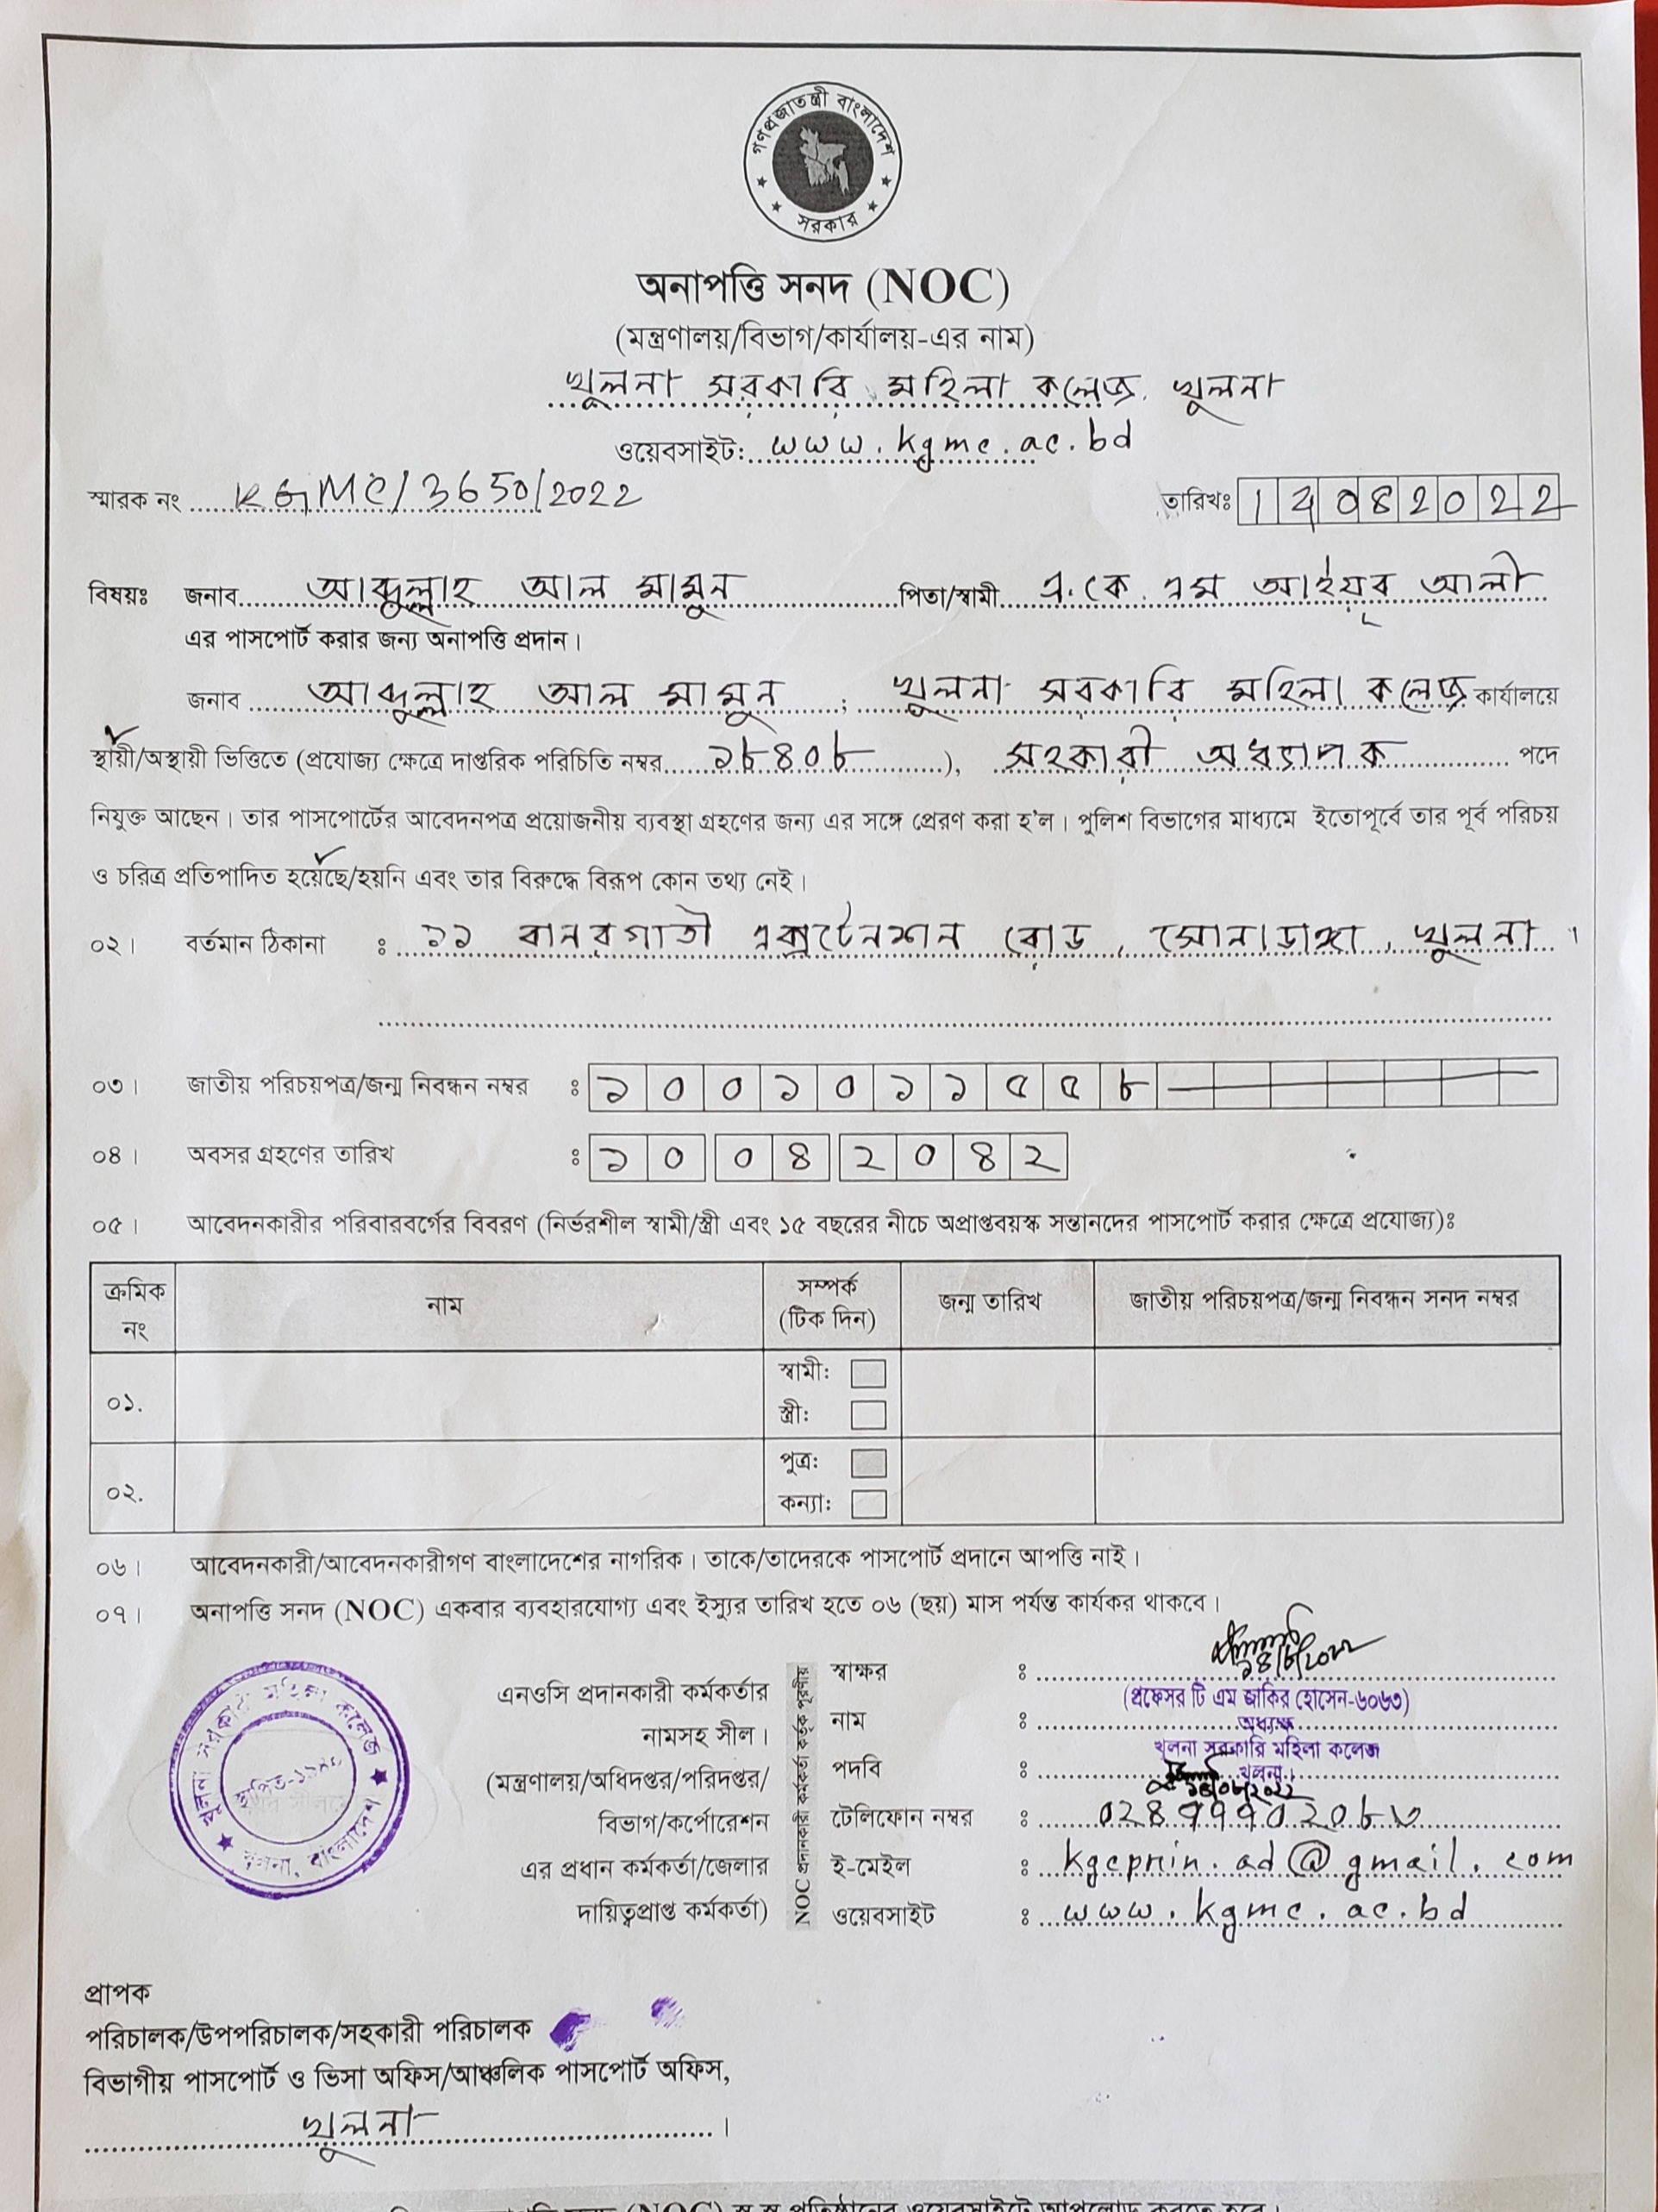 গণপ্রজাতন্ত্রী বাংলাদেশ
সরকার
অনাপত্তি সনদ (NOC)
(মন্ত্রণালয়/বিভাগ/কার্যালয়-এর নাম)
খুলনা সরকারি মহিলা কলেজ, খুলনা
ওয়েবসাইট: www.kgmc.ac.bd
স্মারক নং KGMC/3650/2022 তারিখঃ 14082022
বিষয়ঃ জনাব আব্দুল্লাহ আল মামুন পিতা/স্বামী এ.কে.এম আইয়ুব আলী
এর পাসপোর্ট করার জন্য অনাপত্তি প্রদান।
জনাব আব্দুল্লাহ আল মামুন ; খুলনা সরকারি মহিলা কলেজ কার্যালয়ে
স্থায়ী/অস্থায়ী ভিত্তিতে (প্রযোজ্য ক্ষেত্রে দাপ্তরিক পরিচিতি নম্বর ১৮৪০৮), সহকারী অধ্যাপক পদে
নিযুক্ত আছেন। তার পাসপোর্টের আবেদনপত্র প্রয়োজনীয় ব্যবস্থা গ্রহণের জন্য এর সঙ্গে প্রেরণ করা হ'ল। পুলিশ বিভাগের মাধ্যমে ইতোপূর্বে তার পূর্ব পরিচয়
ও চরিত্র প্রতিপাদিত হয়েছে/হয়নি এবং তার বিরুদ্ধে বিরূপ কোন তথ্য নেই।
০২। বর্তমান ঠিকানা : ১১ বানরগাতী এক্সটেনশন রোড, সোনাডাঙ্গা, খুলনা।
০৩। জাতীয় পরিচয়পত্র/জন্ম নিবন্ধন নম্বর : ১০০১০১১৫৫৮
০৪। অবসর গ্রহণের তারিখ : ১০০৪২০৪২
০৫। আবেদনকারীর পরিবারবর্গের বিবরণ (নির্ভরশীল স্বামী/স্ত্রী এবং ১৫ বছরের নীচে অপ্রাপ্তবয়স্ক সন্তানদের পাসপোর্ট করার ক্ষেত্রে প্রযোজ্য)ঃ
ক্রমিক নং নাম সম্পর্ক (টিক দিন) জন্ম তারিখ জাতীয় পরিচয়পত্র/জন্ম নিবন্ধন সনদ নম্বর
০১. স্বামী:
স্ত্রী:
০২. পুত্র:
কন্যা:
০৬। আবেদনকারী/আবেদনকারীগণ বাংলাদেশের নাগরিক। তাকে/তাদেরকে পাসপোর্ট প্রদানে আপত্তি নাই।
০৭। অনাপত্তি সনদ (NOC) একবার ব্যবহারযোগ্য এবং ইস্যুর তারিখ হতে ০৬ (ছয়) মাস পর্যন্ত কার্যকর থাকবে।
খুলনা সরকারি মহিলা কলেজ
খুলনা, বাংলাদেশ
এনওসি প্রদানকারী কর্মকর্তার
নামসহ সীল।
(মন্ত্রণালয়/অধিদপ্তর/পরিদপ্তর/
বিভাগ/কর্পোরেশন
এর প্রধান কর্মকর্তা/জেলার
দায়িত্বপ্রাপ্ত কর্মকর্তা)
NOC প্রদানকারী কর্মকর্তা কর্তৃক পূরণীয়
স্বাক্ষর :
নাম : (প্রফেসর টি এম জাকির হোসেন-৬০৬৩)
অধ্যক্ষ
পদবি : খুলনা সরকারি মহিলা কলেজ
খুলনা।
টেলিফোন নম্বর :
ই-মেইল : kgcprin.ad@gmail.com
ওয়েবসাইট : www.kgmc.ac.bd
প্রাপক
পরিচালক/উপপরিচালক/সহকারী পরিচালক
বিভাগীয় পাসপোর্ট ও ভিসা অফিস/আঞ্চলিক পাসপোর্ট অফিস,
খুলনা।